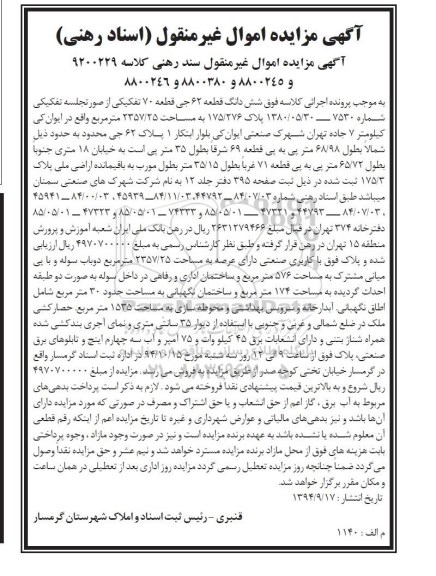 آگهی مزایده اموال غیرمنقول (اسناد رهنی)
آگهی مزایده اموال غیرمنقول سند رهنی کلاسه ۹۲۰۰۲۲۹
و ۸۸۰۰۲۴۵ و ۸۸۰۰۳۸۰ و ۸۸۰۰۲۴۶
به موجب پرونده اجرائی کلاسه فوق شش دانگ قطعه ۶۲ جی قطعه ۷۰ تفکیکی از صورتجلسه تفکیکی
شماره ۷۵۳۰ ــ ۱۳۸۰/۰۵/۳۰ پلاک ۱۷۵/۲۷۶ به مساحت ۲۳۵۷/۲۵ مترمربع واقع در ایوان‌کی
کیلومتر ۷ جاده تهران شهرک صنعتی ایوان‌کی بلوار ابتکار ۱ پلاک ۶۲ جی محدود به حدود ذیل
شمالا بطول ۶۸/۹۸ متر پی به پی قطعه ۶۹ شرقا بطول ۳۵ متر پی است به خیابان ۱۸ متری جنوبا
بطول ۶۵/۷۲ متر پی به پی قطعه ۷۱ غربا بطول ۳۵/۱۵ متر بطول مورب به باقیمانده اراضی ملی پلاک
۱۷۵/۳ ثبت شده در ذیل ثبت صفحه ۳۹۵ دفتر جلد ۱۲ به نام شرکت شهرک های صنعتی سمنان
میباشد طبق اسناد رهنی شماره ۸۴/۰۷/۰۳ ــ ۴۴۷۹۲، ۸۴/۱۱/۰۳ــ ۴۵۹۳۹، ۸۴/۰۰/۰۳ ــ ۴۵۹۴۱
، ۸۴/۰۷/۰۳ ــ ۴۴۷۹۳ و ۴۷۳۲۱ ــ ۸۵/۰۵/۰۱ و ۷۴۳۲۳ ــ ۸۵/۰۵/۰۱ و ۴۷۳۲۳ ــ ۸۵/۰۵/۰۱
دفترخانه ۳۷۴ تهران در قبال مبلغ ۲۶۳۱۲۷۹۴۶۶ ریال در رهن بانک ملی ایران شعبه آموزش و پرورش
منطقه ۱۵ تهران در رهن قرار گرفته و طبق نظر کارشناس رسمی به مبلغ ۴۹۷۰۷۰۰۰۰۰ ریال ارزیابی
شده و پلاک فوق با کاربری صنعتی دارای عرصه به مساحت ۲۳۵۷/۲۵ مترمربع دوباب سوله و با پی
میانی مشترک به مساحت ۵۷۶ متر مربع و ساختمان اداری و رفاهی در داخل سوله به صورت دو طبقه
احداث گردیده به مساحت ۱۷۴ متر مربع و ساختمان نگهبانی به مساحت حدود ۳۰ متر مربع شامل
اطاق نگهبانی، آبدارخانه و سرویس بهداشتی و محوطه سازی به مساحت ۱۵۳۵ متر مربع. حصارکشی
ملک در ضلع شمالی و غربی و جنوبی با استفاده از دیوار ۳۵ سانتی متری و نمای آجری بندکشی شده
همراه شناژ بتنی و دارای انشعابات برق ۴۵ کیلو وات و ۷۵ آمپر و آب سه چهارم اینچ و تابلوهای برق
صنعتی، پلاک فوق از ساعت ۹ الی ۱۲ روز سه شنبه مورخ ۹۴/۱۰/۱۵ در اداره ثبت اسناد گرمسار واقع
در گرمسار خیابان تختی کوچه صدر از طریق مزایده به فروش می رسد. مزایده از مبلغ ۴۹۷۰۷۰۰۰۰۰
ریال شروع و به بالاترین قیمت پیشنهادی نقدا فروخته می شود. لازم به ذکر است پرداخت بدهی‌های
مربوط به آب برق، گاز اعم از حق انشعاب و یا حق اشتراک و مصرف در صورتی که مورد مزایده دارای
آن‌ها باشد و نیز بدهی‌های مالیاتی و عوارض شهرداری و غیره تا تاریخ مزایده اعم از اینکه رقم قطعی
آن معلوم شده یا نشده باشد به عهده برنده مزایده است و نیز در صورت وجود مازاد، وجوه پرداختی
بابت هزینه های فوق از محل مازاد برنده مزایده مسترد خواهد شد و نیم عشر و حق مزایده نقدا وصول
می‌گردد ضمنا چنانچه روز مزایده تعطیل رسمی گردد مزایده روز اداری بعد از تعطیلی در همان ساعت
و مکان مقرر برگزار خواهد شد.
تاریخ انتشار : ۱۳۹۴/۹/۱۷
قنبری – رئیس ثبت اسناد و املاک شهرستان گرمسار
م الف : ۱۱۴۰